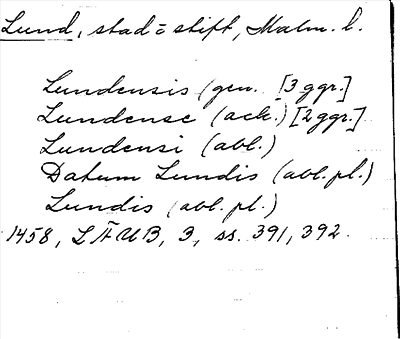 Lund, stad o stift, Malm. l.
Lundensis (gen. [3 ggr.]
Lundense (ack.) [2 ggr.]
Lundensi (abl.)
Datum Lundis (abl. pl.)
Lundis (abl. pl.)
1458, LÄUB, 3, ss. 391, 392.